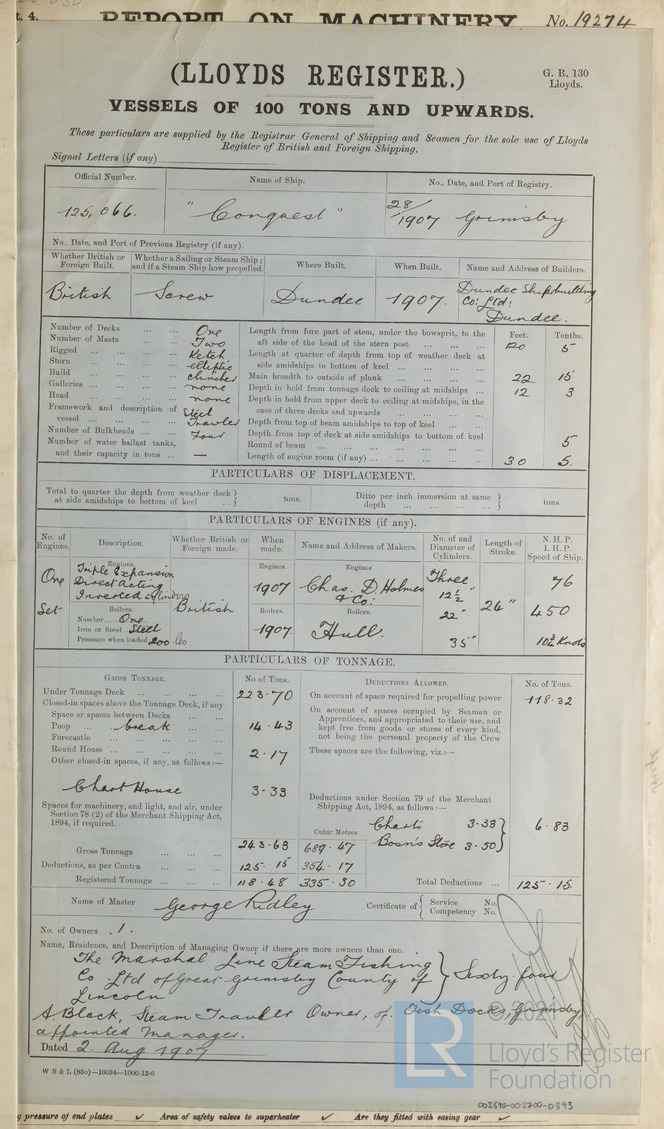 t. 4. REPORT ON MACHINERY No. 19274
(LLOYDS REGISTER.)
G. R. 130
Lloyds.
VESSELS OF 100 TONS AND UPWARDS.
These particulars are supplied by the Registrar General of Shipping and Seamen for the sole use of Lloyds
Register of British and Foreign Shipping.
Signal Letters (if any)
Official Number. Name of Ship. No., Date, and Port of Registry.
125,066. "Conquest" 28/1907 Grimsby
No., Date, and Port of Previous Registry (if any).
Whether British or Foreign Built. Whether a Sailing or Steam Ship; and if a Steam Ship how propelled. Where Built. When Built. Name and Address of Builders.
British Screw Dundee 1907. Dundee Shipbuilding
Co: Ltd:
Dundee.
Feet. Tenths.
Number of Decks ... ... One
Number of Masts ... ... Two
Rigged ... ... ... Ketch
Stern ... ... ... elliptic
Build ... ... ... clincher
Galleries ... ... ... none
Head ... ... ... none
Framework and description of vessel ... ... Steel Trawler
Number of Bulkheads ... ... Four
Number of water ballast tanks,
and their capacity in tons ... —
Length from fore part of stem, under the bowsprit, to the
aft side of the head of the stern post ... ... 120 5
Length at quarter of depth from top of weather deck at
side amidships to bottom of keel ... ... ...
Main breadth to outside of plank ... ... ... 22 15
Depth in hold from tonnage deck to ceiling at midships, ... 12 3
Depth in hold from upper deck to ceiling at midships, in the
case of three decks and upwards ... ... ...
Depth from top of beam amidships to top of keel ... ...
Depth from top of deck at side amidships to bottom of keel
Round of beam ... ... ... 5
Length of engine room (if any) ... ... ... 30 5.
PARTICULARS OF DISPLACEMENT.
Total to quarter the depth from weather deck at side amidships to bottom of keel ... tons. Ditto per inch immersion at same depth ... ... tons
PARTICULARS OF ENGINES (if any).
No. of Engines. Description. Whether British or Foreign made. When made. Name and Address of Makers. No. of and Diameter of Cylinders. Length of Stroke. N.H.P. I.H.P. Speed of Ship.
One Set
Engines.
Triple Expansion
Direct Acting
Inverted cylinders
Boilers.
Number One
Iron or Steel Steel
Pressure when loaded 200 lbs
British
Engines.
1907
Boilers.
1907.
Engines
Chas. D. Holmes
& Co:
Boilers.
Hull.
Three
12½"
22"
35"
24"
76
450
10¾ Knots
PARTICULARS OF TONNAGE.
Gross Tonnage. No of Tons. Deductions Allowed. No. of Tons.
Under Tonnage Deck ... ... ... 223.70
Closed-in spaces above the Tonnage Deck, if any
Space or spaces between Decks ... ...
Poop ... break ... ... 14.43
Forecastle ... ... ...
Round House ... ... ... 2.17
Other closed-in spaces, if any, as follows:—
Chart House 3.33
Spaces for machinery, and light, and air, under
Section 78 (2) of the Merchant Shipping Act,
1894, if required.
Cubic Metres
Gross Tonnage ... ... 243.63 689.47
Deductions, as per Contra ... ... 125.15 354.17
Registered Tonnage ... ... 118.48 335.30
On account of space required for propelling power 118.32
On account of spaces occupied by Seamen or
Apprentices, and appropriated to their use, and
kept free from goods or stores of every kind,
not being the personal property of the Crew
These spaces are the following, viz.:—
Deductions under Section 79 of the Merchant
Shipping Act, 1894, as follows:—
Charts 3.33
Bosn's Store 3.50
6.83
Total Deductions ... 125.15.
Name of Master George Ridley Certificate of Service No. Competency No.
No. of Owners 1.
Name, Residence, and Description of Managing Owner if there are more owners than one.
The Marshal Line Steam Fishing
Co Ltd of Great Grimsby County of
Lincoln
Sixty four
A Black, Steam Trawler Owner, of Fish Docks, Grimsby
appointed Manager.
Dated 2. Aug 1907
W B & L (83o)—16034—1000-12-6
LR © 2021
Lloyd's Register
Foundation
002690-002700-0393
g pressure of end plates ✓ Area of safety valves to superheater ✓ Are they fitted with easing gear ✓